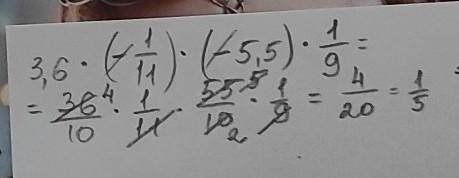 3,6 · (-1/11) · (-5,5) · 1/9 =
= 36 4/10 · 1/11 · 55 5/10 2 · 1/9 = 4/20 = 1/5